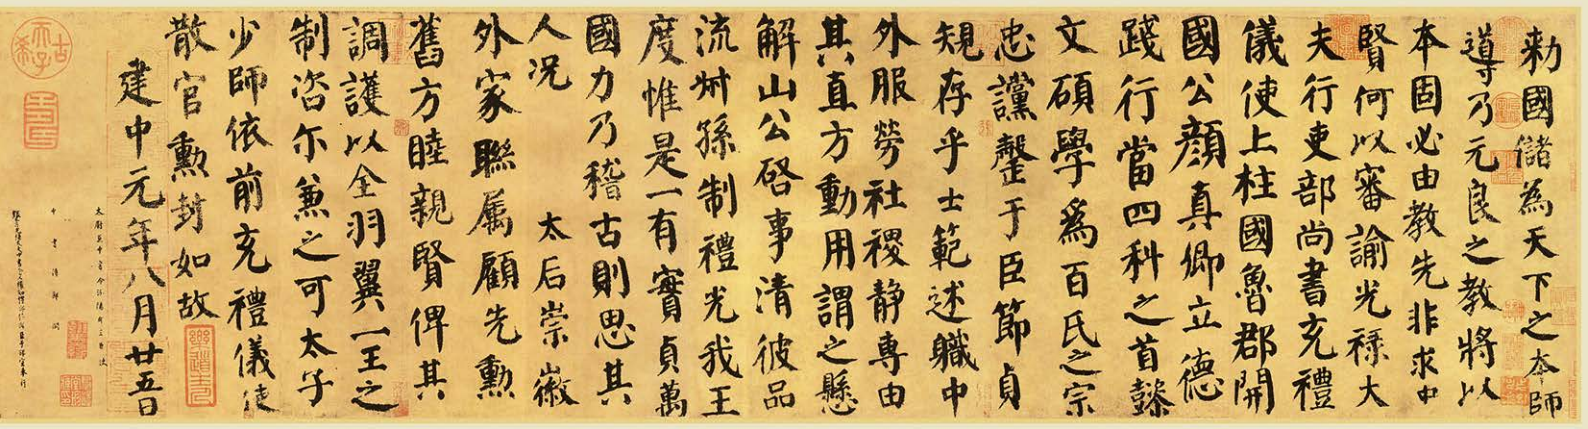 勅國儲為天下之本師
導乃元良之教將以
本固必由教先非求中
賢何以審諭光祿大
夫行吏部尚書充禮
儀使上柱國魯郡開
國公顏真卿立德
踐行當四科之首懿
文碩學爲百氏之宗
忠讜罄于臣節貞
規存乎士範述職中
外服勞社稷静專由
其直方動用謂之懸
解山公啓事清彼品
流叔孫制禮光我王
度惟是一有實貞萬
國力乃稽古則思其
人況 太后崇徽
外家聯屬顧先勳
舊方睦親賢俾其
調護以全羽翼一王之
制咨尔兼之可太子
少師依前充禮儀使
散官勳封如故
建中元年八月廿五日
太尉兼中書令汾陽郡王臣 使
中書侍郎 闕
古希天子